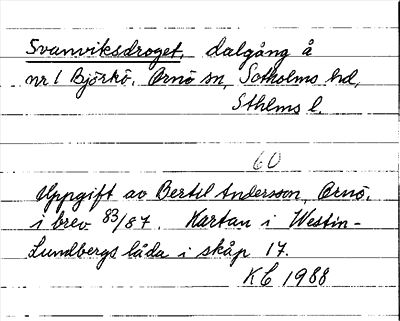 Svanviksdroget, dalgång å
nr 1 Björkö, Ornö sn, Sotholms hd,
Sthlms l.
60
Uppgift av Bertil Andersson, Ornö,
i brev 83/87. Kartan i Westin-
Lundbergs låda i skåp 17.
KC 1988